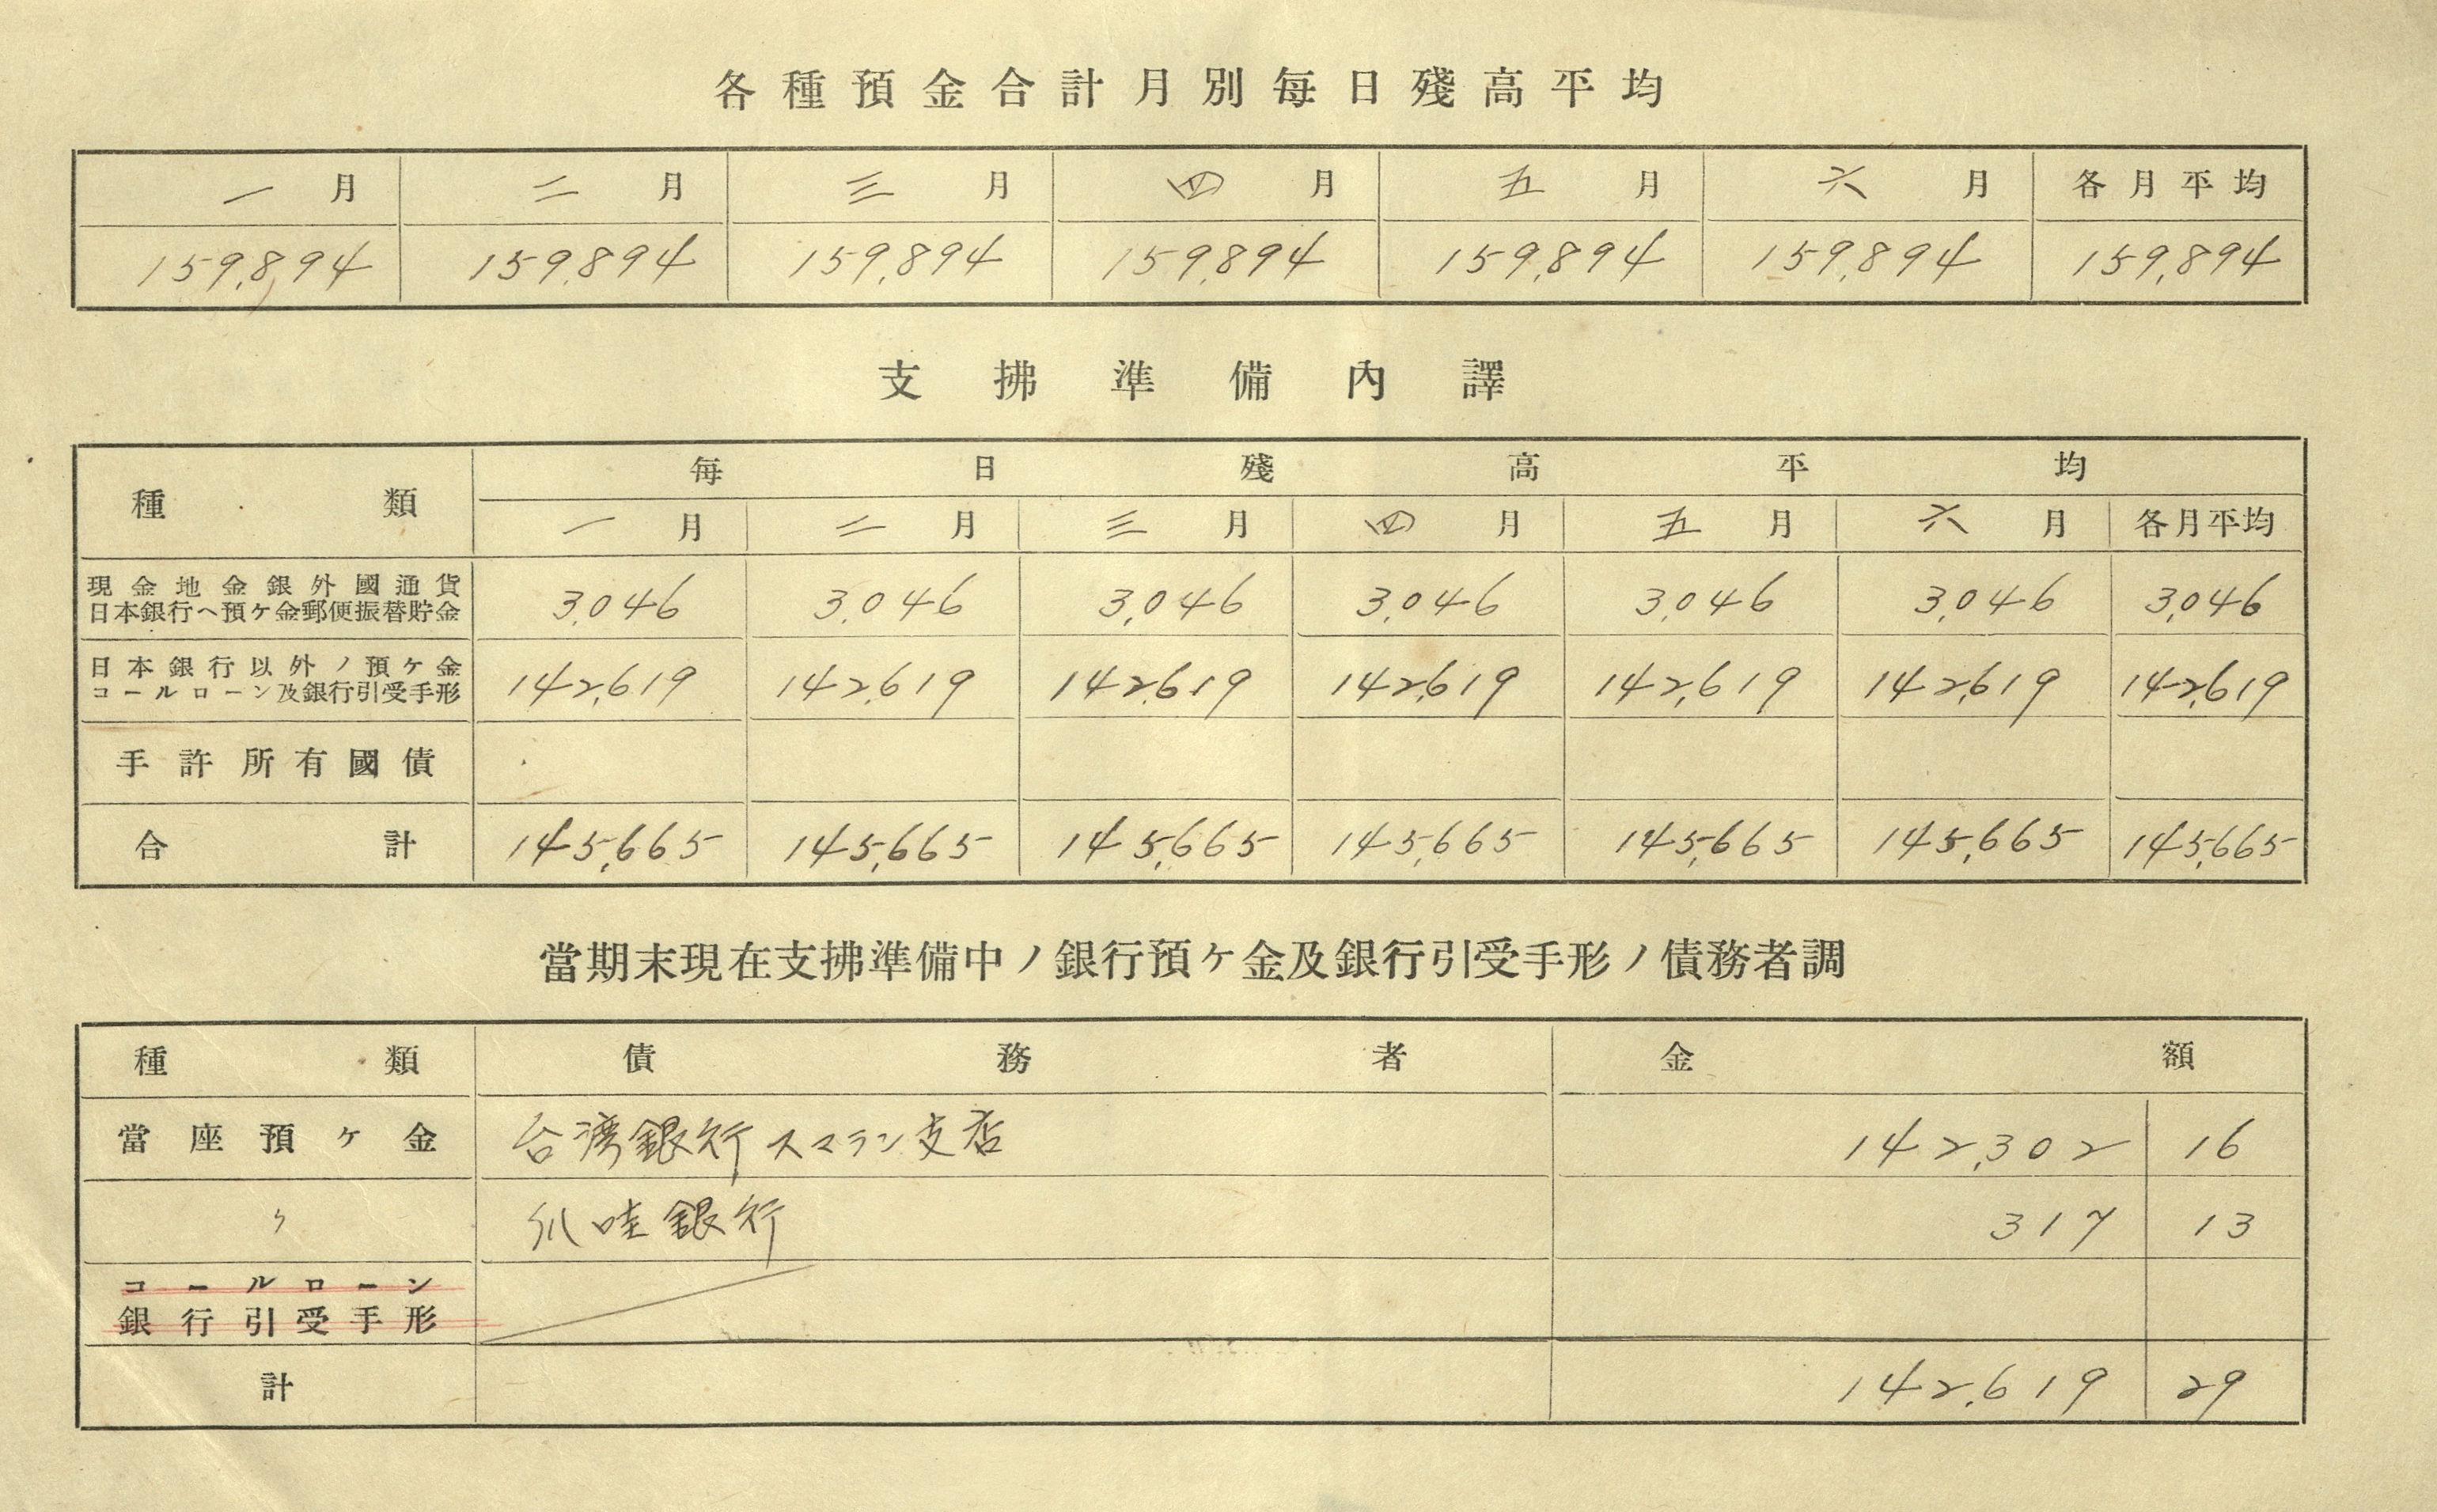 各種預金合計月別每日殘高平均
一月 二月 三月 四月 五月 六月 各月平均
159,894 159,894 159,894 159,894 159,894 159,894 159,894
支拂準備內譯
種類 每日殘高平均
一月 二月 三月 四月 五月 六月 各月平均
現金地金銀外國通貨
日本銀行ヘ預ケ金郵便振替貯金 3,046 3,046 3,046 3,046 3,046 3,046 3,046
日本銀行以外ノ預ケ金
コールローン及銀行引受手形 142,619 142,619 142,619 142,619 142,619 142,619 142,619
手許所有國債
合計 145,665 145,665 145,665 145,665 145,665 145,665 145,665
當期末現在支拂準備中ノ銀行預ケ金及銀行引受手形ノ債務者調
種類 債務者 金額
當座預ケ金 台湾銀行スマラン支店 142,302 16
〃 爪哇銀行 317 13
コールローン
銀行引受手形
計 142,619 29